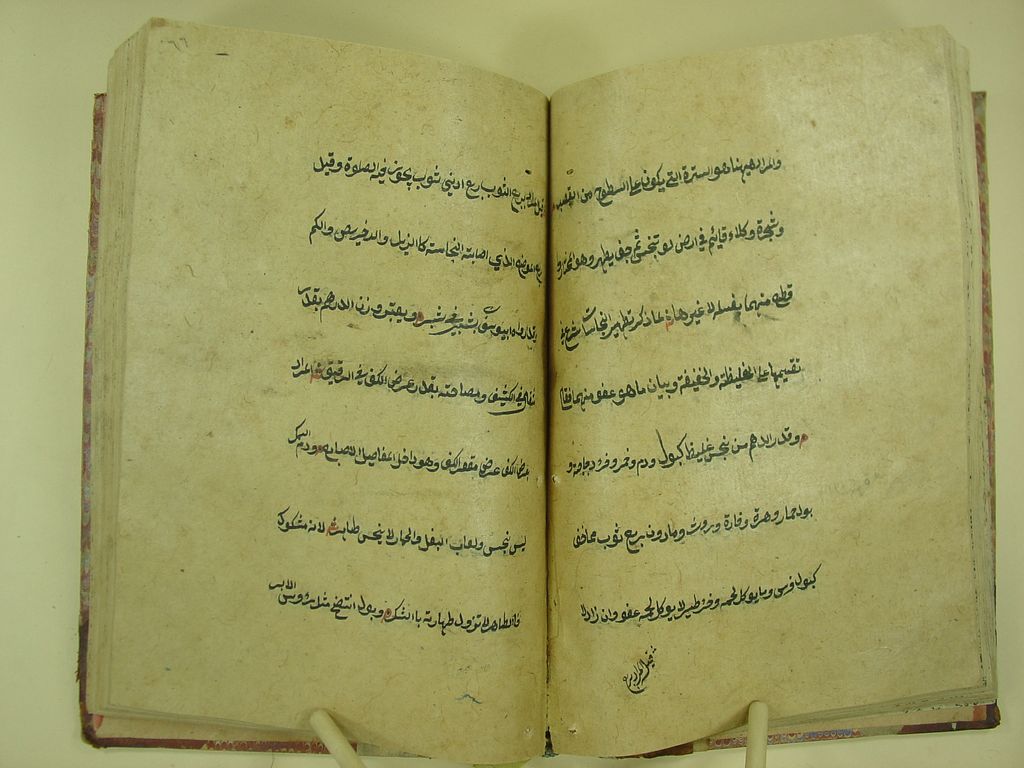 والمراد هيهنا هو السترة التي يكون على السطوح من القصب
وشجرة وكلاء قايم في ارض لو تنجس ثم جف يطهر وهو المختار و
قطع منهما يغسله لا غيرها لما ذكر تطهير النجاسات شرع في
تقسيمها على الغليظة والخفيفة وبيان ما هو عفو منهما فقال
وقدر الدرهم من نجس غليظ كبول ودم وخمر وخرء دجاجة و
بول حمار وهرة وفارة وروث وما دون ربع ثوب مما خف
كبول فرس وما يوكل لحمه وخرء طير لا يوكل لحمه عفو وان زاد لا
قيل المراد بربع
قيل المراد بربع الثوب ربع ادنى ثوب يجوز فيه الصلوة وقيل
ربع الموضع الذي اصابته النجاسة كالذيل والدخريص والكم
بشبر في شبر ويعتبر وزن الدرهم بقدر
مثقال في الكثيف ومساحته بقدر عرض الكف في الرقيق المراد
بعرض الكف عرض مقعر الكف وهو داخل مفاصل الاصابع ودم السمك
ليس بنجس ولعاب البغل والحمار لا ينجس طاهرا لانه مشكوك
فالطاهر لا تزول طهارته بالشك وبول انتضح مثل رؤوس الابر